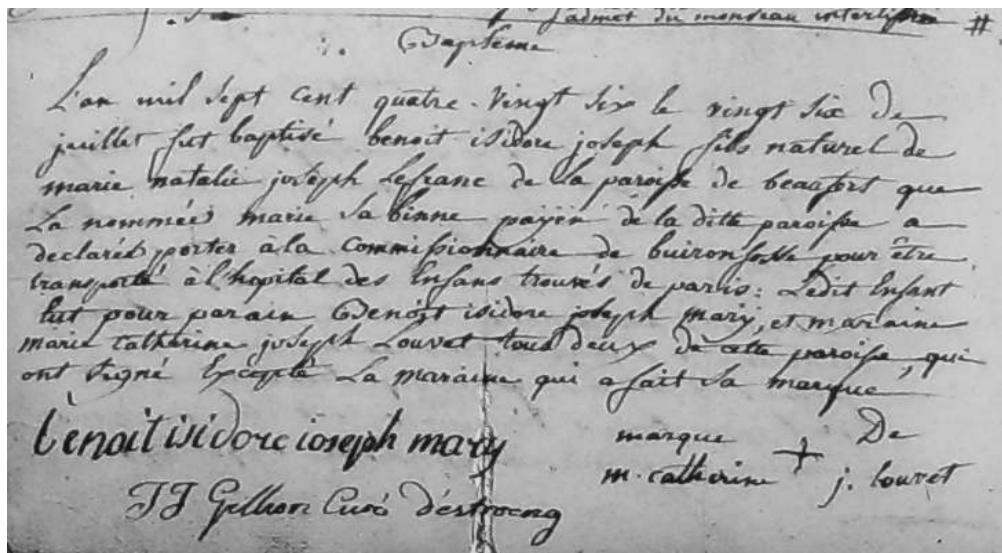 j admet du monseau interlign #
Baptême
L'an mil sept cent quatre-vingt six le vingt six de
juillet fut baptisé benoit isidore joseph fils naturel de
marie natalie joseph Lefranc de la paroisse de beaufort que
La nommée marie sabinne payen de la ditte paroisse a
declaré porter à la Commissionnaire de buironfosse pour être
transporté à l'hopital des Enfans trouvés de paris: Ledit Enfant
eut pour parain Benoit isidore joseph mary, et maraine
marie catherine joseph Louvet tous deux de cette paroisse, qui
ont signé Excepté La maraine qui a fait sa marque
benoit isidore ioseph mary
marque + De
m. catherine j. louvet
JJ Gillion Curé d'éstroeng